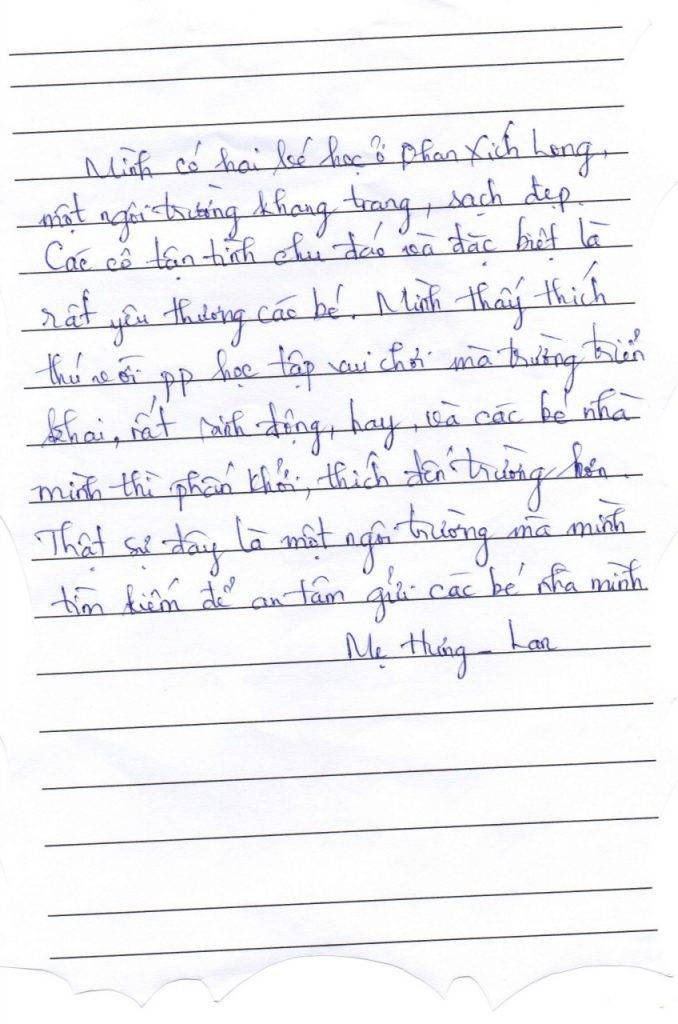 Mình có hai bé học ở Phan Xích Long,
một ngôi trường khang trang, sạch đẹp.
Các cô tận tình chu đáo và đặc biệt là
rất yêu thương các bé. Mình thấy thích
thú với pp học tập vui chơi mà trường triển
khai, rất sinh động, hay, và các bé nhà
mình thì phấn khởi, thích đến trường hơn.
Thật sự đây là một ngôi trường mà mình
tìm kiếm để an tâm gửi các bé nhà mình
Mẹ Hưng - Lan